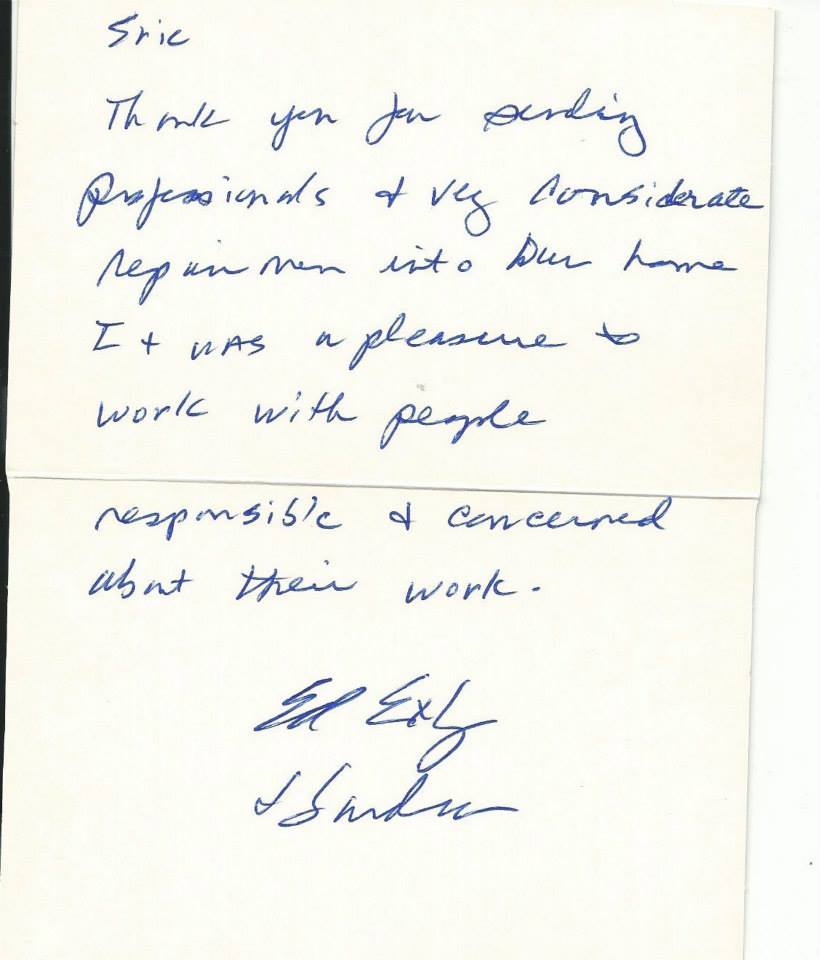 Eric
Thank you for sending
professionals & very considerate
repair men into our home
It was a pleasure to
work with people
responsible & concerned
about their work.
Ed Exly
& Sandra